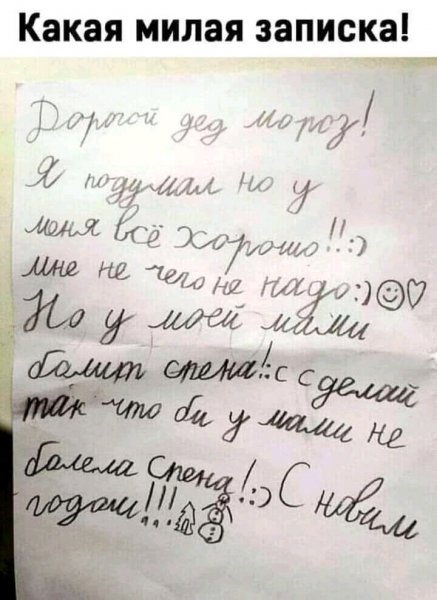 Какая милая записка!
Дорогой дед мороз!
Я подумал но у
меня всё хорошо!!:)
мне не чего не надо:)☺♡
Но у моей мами
балит спена!:с сделай
так что би у мами не
балела спена!:) С новим
годом!!!